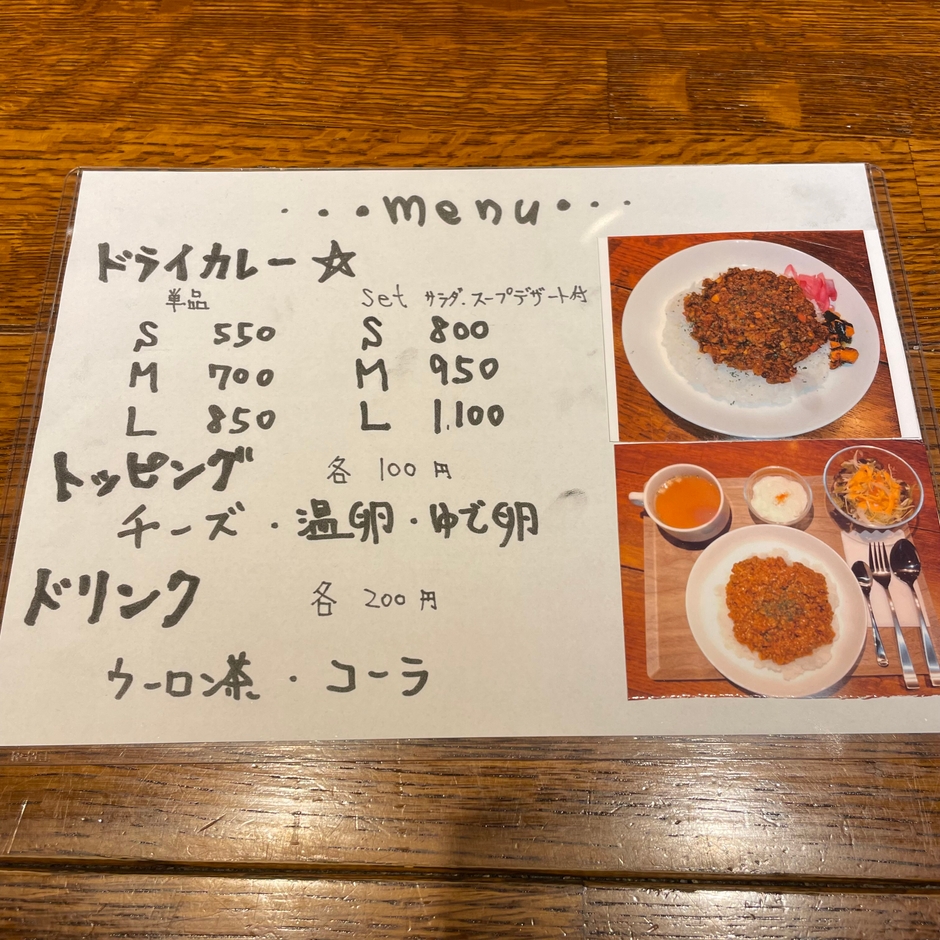 ・・・menu・・・
ドライカレー☆
単品 set サラダ・スープデザート付
S 550 S 800
M 700 M 950
L 850 L 1,100
トッピング 各 100円
チーズ・温卵・ゆで卵
ドリンク 各 200円
ウーロン茶・コーラ